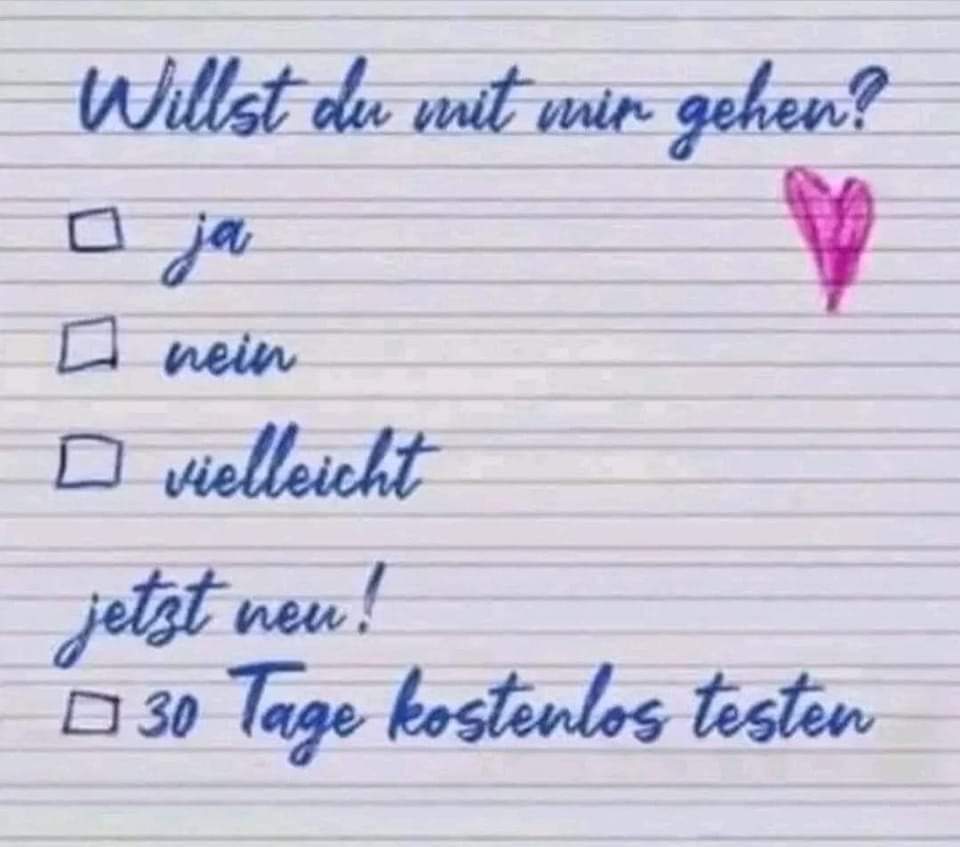 Willst du mit mir gehen?
ja
nein
vielleicht
jetzt neu!
30 Tage kostenlos testen